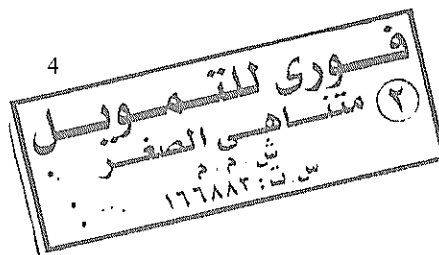 4
فورى للتمويل
متناهى الصغر ٢
ش. م. م
س. ت: ١٦٦٨٨٢